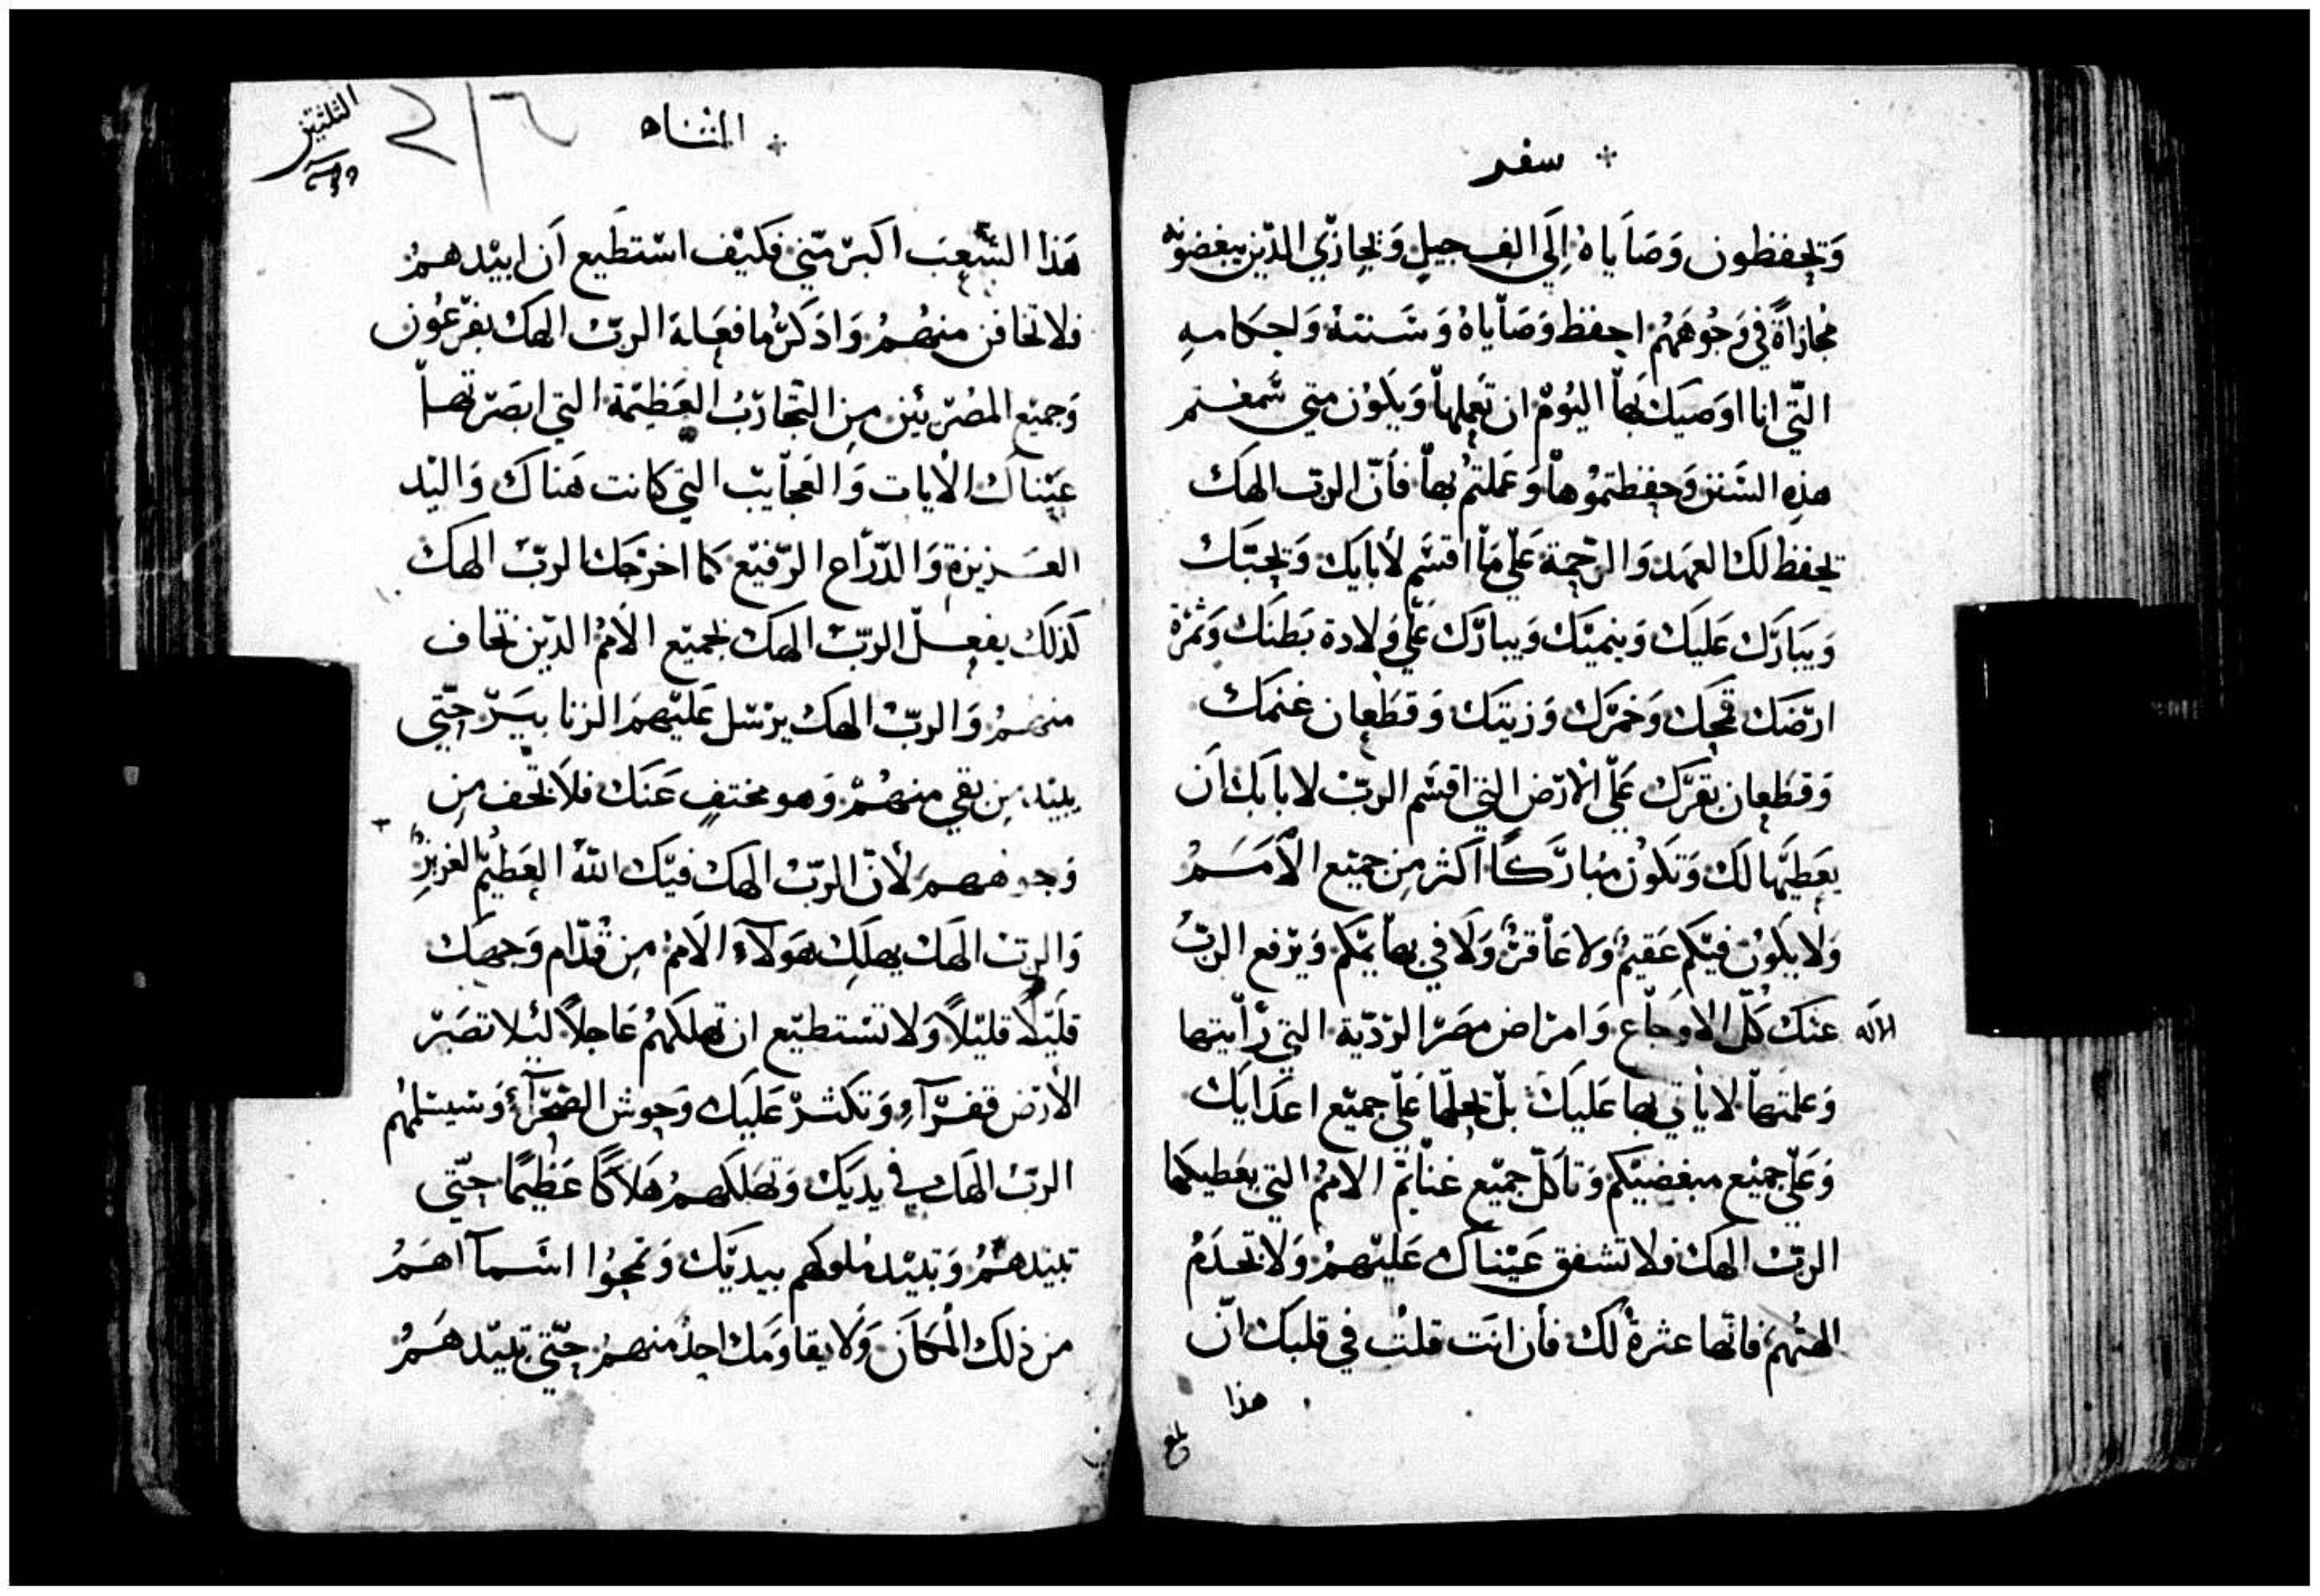 سفر
وَيحفظون وَصَاياهُ اِلَى الف جيلٍ وَيجازي الذين يبغضونه
مُجازاةً في وَجُوهَهُم احفظ وَصَاياهُ وَسَننهُ وَاحكامهِ
التي انا اوَصيَك بهَا اليَوُم ان تعملها وَيكوُن متى سَمعتم
هذِه السَنن وَحفظتموُها وَعَملتمُ بها فأنّ الربّ الهَك
يحفظ لكَ العهَد وَالرَحمة عَلى مَا اقسَم لأبايَك وَيحبّك
وَيبَارَك عَليَك وَينميَّك وَيبارَك عَلى وَلادة بَطنَك وَثمَرة
ارضَك قمحَك وَخمَرك وَزيتك وَقطَعان غنمَك
وَقطعان بقرَك عَلى الأرَض التي اقسَم الربّ لابايَك اَن
يعَطيَها لكَ وَتكَوُن مبُارَكاً اكثر مِن جميَع الاُمَمَ
وَلا يكوُن فيكم عَقيمُ وَلا عَاقرُ وَلَا في بهايمَكم وَيرفع الربُّ
الاله عنكَ كلّ الاوجَاع وَامرَاض مصَر الردّية التي رأيتها
وَعلمتها لا يأتي بها عَليَك بلّ يجعلها عَلى جميَع اعدَايَك
وَعَلى جميَع مبغضيَكم وَتأكلّ جميَع غنايَم الاممُ التي يعَطيكها
الربّ الهكَ فلا تشفق عَينَاك عَليَهمُ وَلا تخدَمُ
الهتهُم فانها عثرةُ لكَ فأن انَت قلت في قلبَك انّ
هذا
المثناه
٢١٦
هَذا الشَعبَ اكبَر منّي فكيَف استطَيع اَن ابيَدهمُ
فلا تخافن منهمُ وَاذكَر ما فعَلهَ الربّ الهَك بفرعَوُن
وَجميَع المصَريَين مِن التجَاربُ العَظيَمة التي ابصَرتها
عَيناكَ الأيات وَالعجَايب التي كانت هَناك وَاليَد
العَزيزة وَالذرَاع الرَفيَع كما اخرَجَك الربّ الهَك
كذَلكَ يفعلّ الربّ الهَك بجميَع الاَممُ الذين تخاف
منهمُ وَالربّ الهكَ يرسَل عَليَهمَ الزنابيَر حتّي
يبيَد مِن بقي منهمُ وَهو مختفٍ عَنَك فلَا تخف مِن
وَجوههمَ لأنّ الربّ الهَك فيَك اللّهُ العَظيَم العزيز
وَالربّ الهَك يهلكِ هَولآء الاَممُ مِن قدّام وَجهَك
قليَلاً قليَلاً وَلا تستطيَع ان تهلكَهمُ عَاجلاً ليَلا تصَير
الأرَض قفرَآء وَتكثر عَليَك وَحوش الصَحرَآء وَسيسَلمُهم
الربّ الهَك في يديَك وَتهلَكهمُ هَلاكاً عَظيَماً حتّي
تبيَدهمُ وَتبيَد ملوكهم بيديَك وَتمحوُا اسَمآاهَمُ
من ذلكَ المكَان وَلا يقاوَمَك احدُ منهمُ حتّي تبيَدهمُ